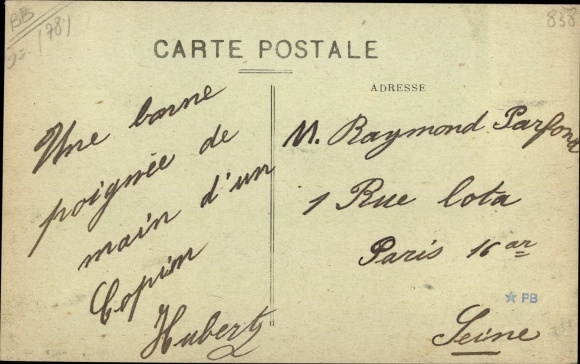 BB
(78)
838
CARTE POSTALE
Une bonne
poignée de
main d'un
Copin
Hubert
ADRESSE
M. Raymond Parfond
1 Rue Cota
Paris 16 ar
PB
Seine